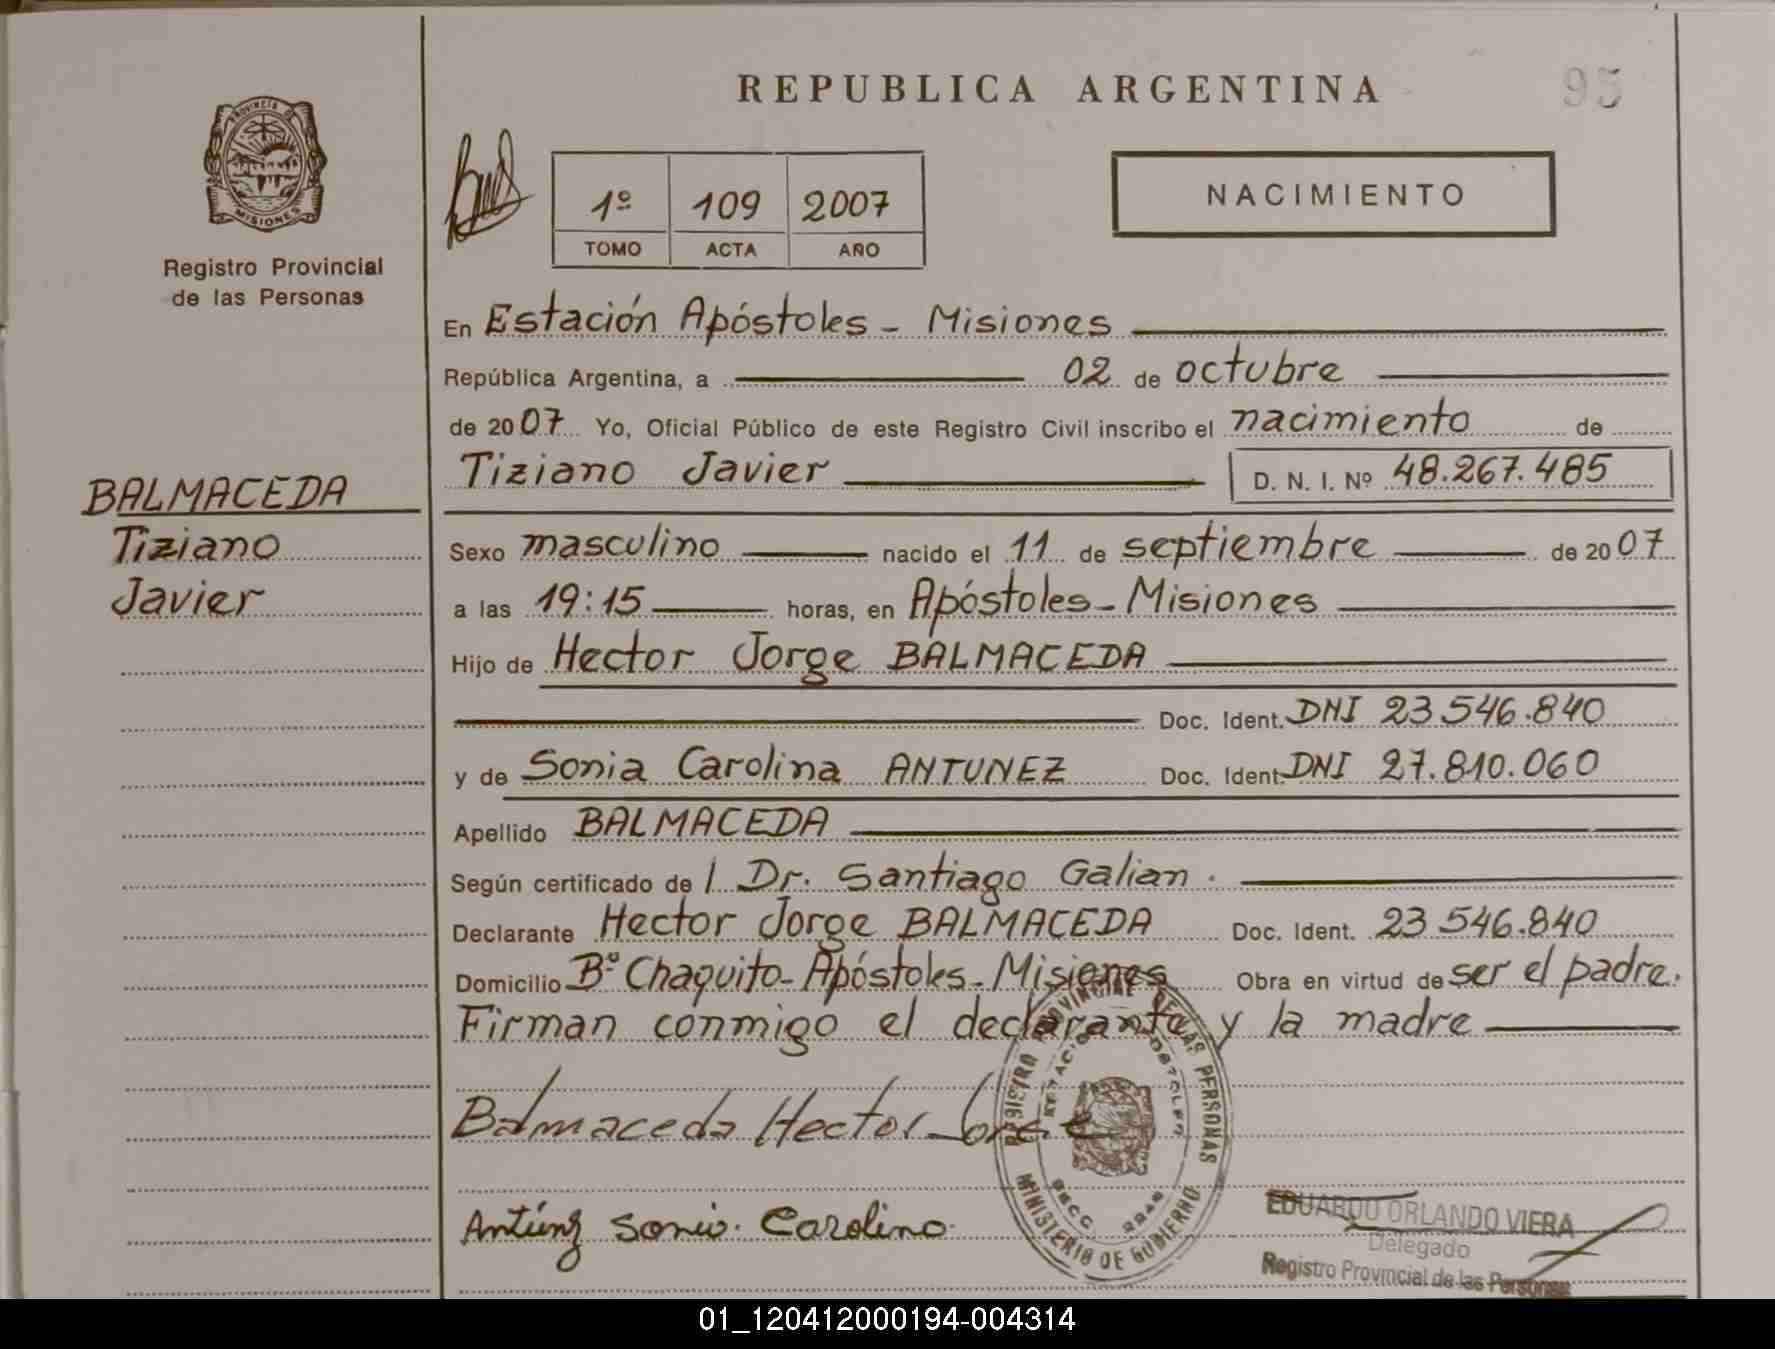 REPUBLICA ARGENTINA
95
PROVINCIA DE
MISIONES
Registro Provincial
de las Personas
1º 109 2007
TOMO ACTA AÑO
NACIMIENTO
En Estación Apóstoles - Misiones
República Argentina, a 02 de octubre
de 2007 Yo, Oficial Público de este Registro Civil inscribo el nacimiento de
Tiziano Javier D. N. I. Nº 48.267.485
BALMACEDA
Tiziano
Javier
Sexo masculino nacido el 11 de septiembre de 2007
a las 19:15 horas, en Apóstoles - Misiones
Hijo de Hector Jorge BALMACEDA
Doc. Ident. DNI 23.546.840
y de Sonia Carolina ANTUNEZ Doc. Ident. DNI 27.810.060
Apellido BALMACEDA
Según certificado de l Dr. Santiago Galian.
Declarante Hector Jorge BALMACEDA Doc. Ident. 23.546.840
Domicilio Bº Chaquito - Apóstoles - Misiones Obra en virtud de ser el padre.
Firman conmigo el declarante y la madre
Balmaceda Hector Jorge
REGISTRO PROVINCIAL DE LAS PERSONAS
MINISTERIO DE GOBIERNO
Antúnez Sonia Carolina
EDUARDO ORLANDO VIERA
Delegado
Registro Provincial de las Personas
01_120412000194-004314